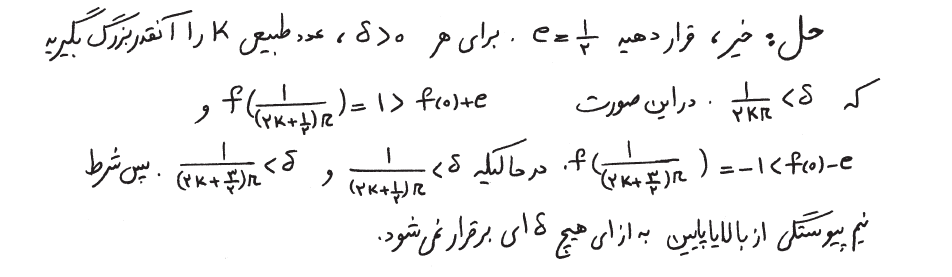 حل: خیر، قرار دهید e=۱/۲ . برای هر δ>۰ ، عدد طبیعی K را آنقدر بزرگ بگیرید
که ۱/(۲Kπ) <δ . در این صورت f(۱/((۲K+۱/۲)π))=۱> f(۰)+e و
f(۱/((۲K+۳/۲)π))=-۱<f(۰)-e . در حالیکه ۱/((۲K+۱/۲)π) <δ و ۱/((۲K+۳/۲)π) <δ . پس شرط
نیم پیوستگی از بالا یا پایین به ازای هیچ δ ای برقرار نمی شود.